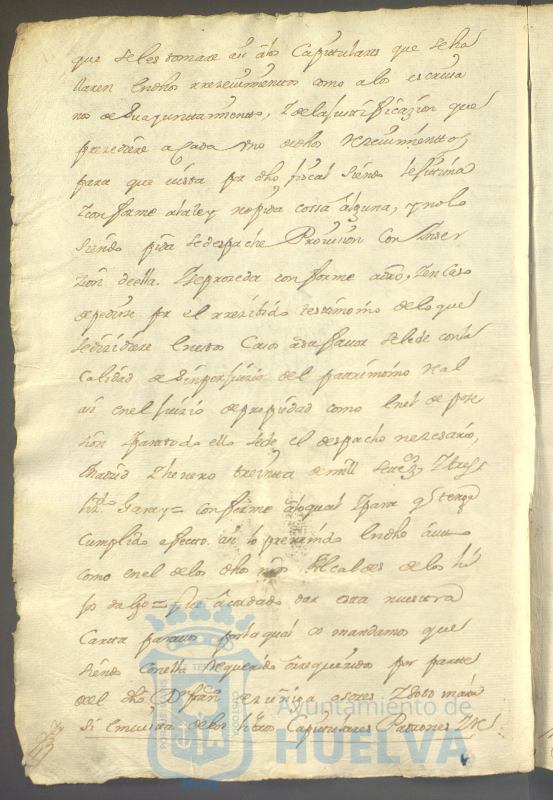 que se les tomare asi a los Capitulares que se ha
llaren en dhos rrezevimientos como a los escriva
no de su ayuntamiento, Y de la justificazion que
prezediere a Cada uno de dhos Rezevimientos,
para que vista por dho fiscal siendo lexitima
Y conforme a la ley no pida cossa alguna, y no lo
siendo pida se despache Provision Con Inser
zion de ella. Y se proceda conforme a dro, Y en Caso
de pedirse por el rrezivido testimonio de lo que
se dezidiere en estos Casos a su favor se le de con la
Calidad de sin perjuizio del patrimonio real
asi en el juizio de propiedad como en el de pose
sion Y para todo ello se de el despacho nezesario,
Madrid Y henero treinta de mill setez.os Y tres
Garay = conforme a lo qual Y para q.e tenga
Cumplido efecto asi lo prevenido en dho auto
como en el de los dhos nros Alcaldes de los hi
jos dalgo = fue acordado dar esta nuestra
Carta para vos por la qual os mandamos que
siendo con ella Requerido o rrequeridos por parte
del dho D. fran.co de zuñiga
de los libros Capitulares Padrones
Ayuntamiento de
HUELVA